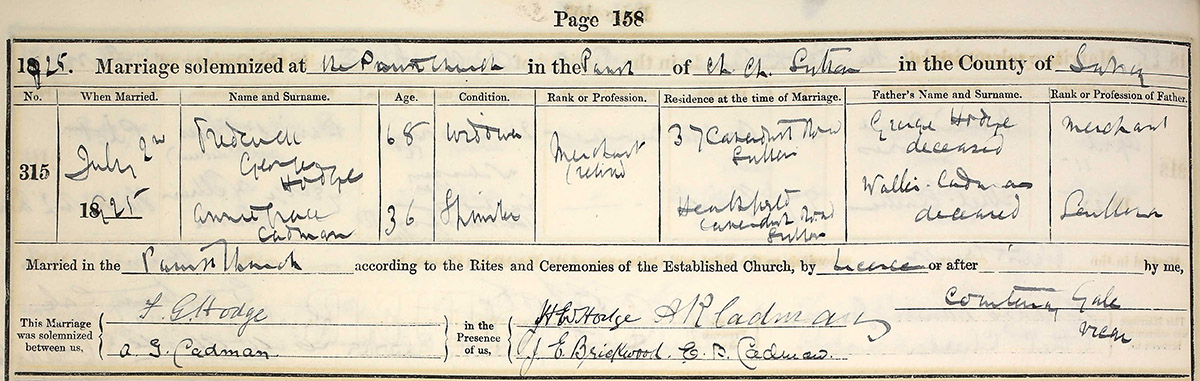 Page 158
1925. Marriage solemnized at the Parish Church in the Parish of Ch. Ch. Sutton in the County of Surrey
No. When Married. Name and Surname. Age. Condition. Rank or Profession. Residence at the time of Marriage. Father's Name and Surname. Rank or Profession of Father.
315 July 2nd 1925
Frederick George Hodge 68 Widower Merchant (retired) 37 Cavendish Road Sutton George Hodge deceased Merchant
Annie Grace Cadman 36 Spinster Cavendish Road Sutton Wallis Cadman deceased
Married in the Parish Church according to the Rites and Ceremonies of the Established Church, by Licence or after by me,
This Marriage was solemnized between us, F. G. Hodge
A G. Cadman
in the Presence of us, H W Hodge A R Cadman
J E Brickwood. Cadman.
Courtenay Gale
Vicar